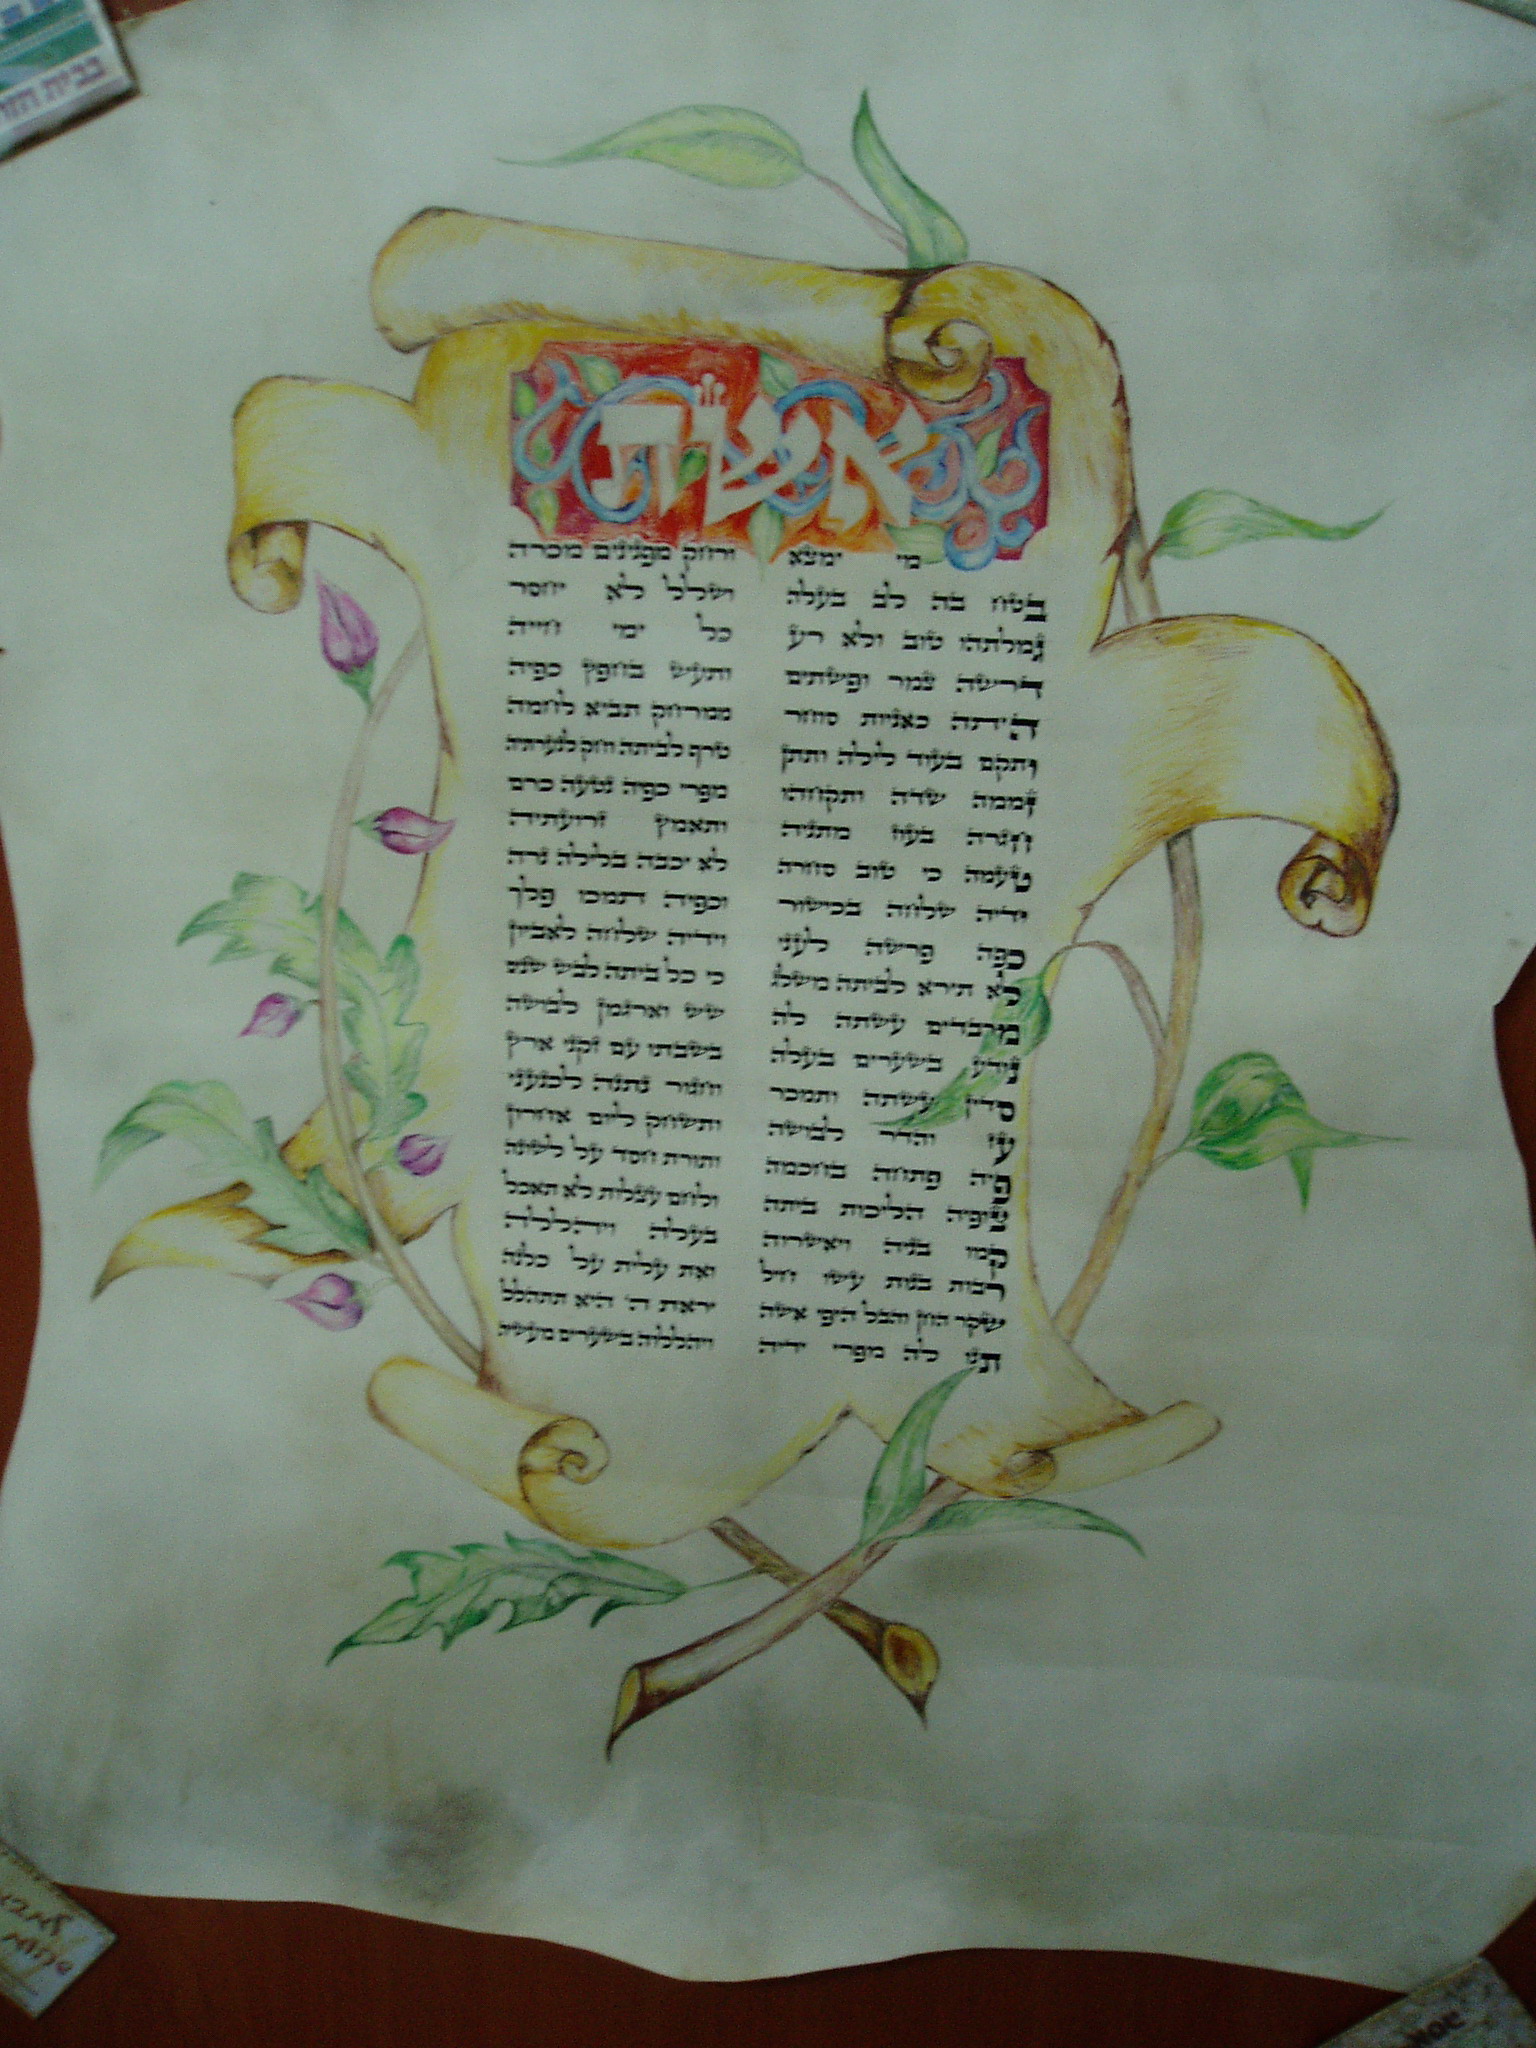 אשת
מי ימצא ורחק מפנינים מכרה
בטח בה לב בעלה ושלל לא יחסר
גמלתהו טוב ולא רע כל ימי חייה
דרשה צמר ופשתים ותעש בחפץ כפיה
היתה כאניות סוחר ממרחק תביא לחמה
ותקם בעוד לילה ותתן טרף לביתה וחק לנערתיה
זממה שדה ותקחהו מפרי כפיה נטעה כרם
חגרה בעוז מתניה ותאמץ זרועתיה
טעמה כי טוב סחרה לא יכבה בלילה נרה
ידיה שלחה בכישור וכפיה תמכו פלך
כפה פרשה לעני וידיה שלחה לאביון
לא תירא לביתה משלג כי כל ביתה לבש שנים
מרבדים עשתה לה שש וארגמן לבושה
נודע בשערים בעלה בשבתו עם זקני ארץ
סדין עשתה ותמכר וחגור נתנה לכנעני
עז והדר לבושה ותשחק ליום אחרון
פיה פתחה בחכמה ותורת חסד על לשונה
צופיה הליכות ביתה ולחם עצלות לא תאכל
קמו בניה ויאשרוה בעלה ויהללה
רבות בנות עשו חיל ואת עלית על כלנה
שקר החן והבל היפי אשה יראת ה' היא תתהלל
תנו לה מפרי ידיה ויהללוה בשערים מעשיה
בבית